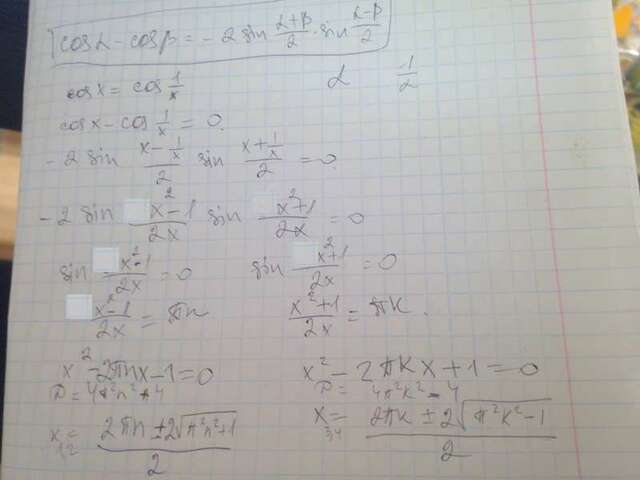 cosα - cosβ = -2 sin (α+β)/2 · sin (α-β)/2
cosx = cos 1/x
α 1/2
cosx - cos 1/x = 0.
-2 sin (x - 1/x)/2 sin (x + 1/x)/2 = 0
-2 sin (x²-1)/2x sin (x²+1)/2x = 0
sin (x²-1)/2x = 0 sin (x²+1)/2x = 0
(x²-1)/2x = πn (x²+1)/2x = πk.
x² - 2πnx - 1 = 0 x² - 2πkx + 1 = 0
D = 4π²n² + 4 D = 4π²k² - 4
x₁,₂ = (2πn ± 2√(π²n²+1))/2 x₃,₄ = (2πk ± 2√(π²k²-1))/2